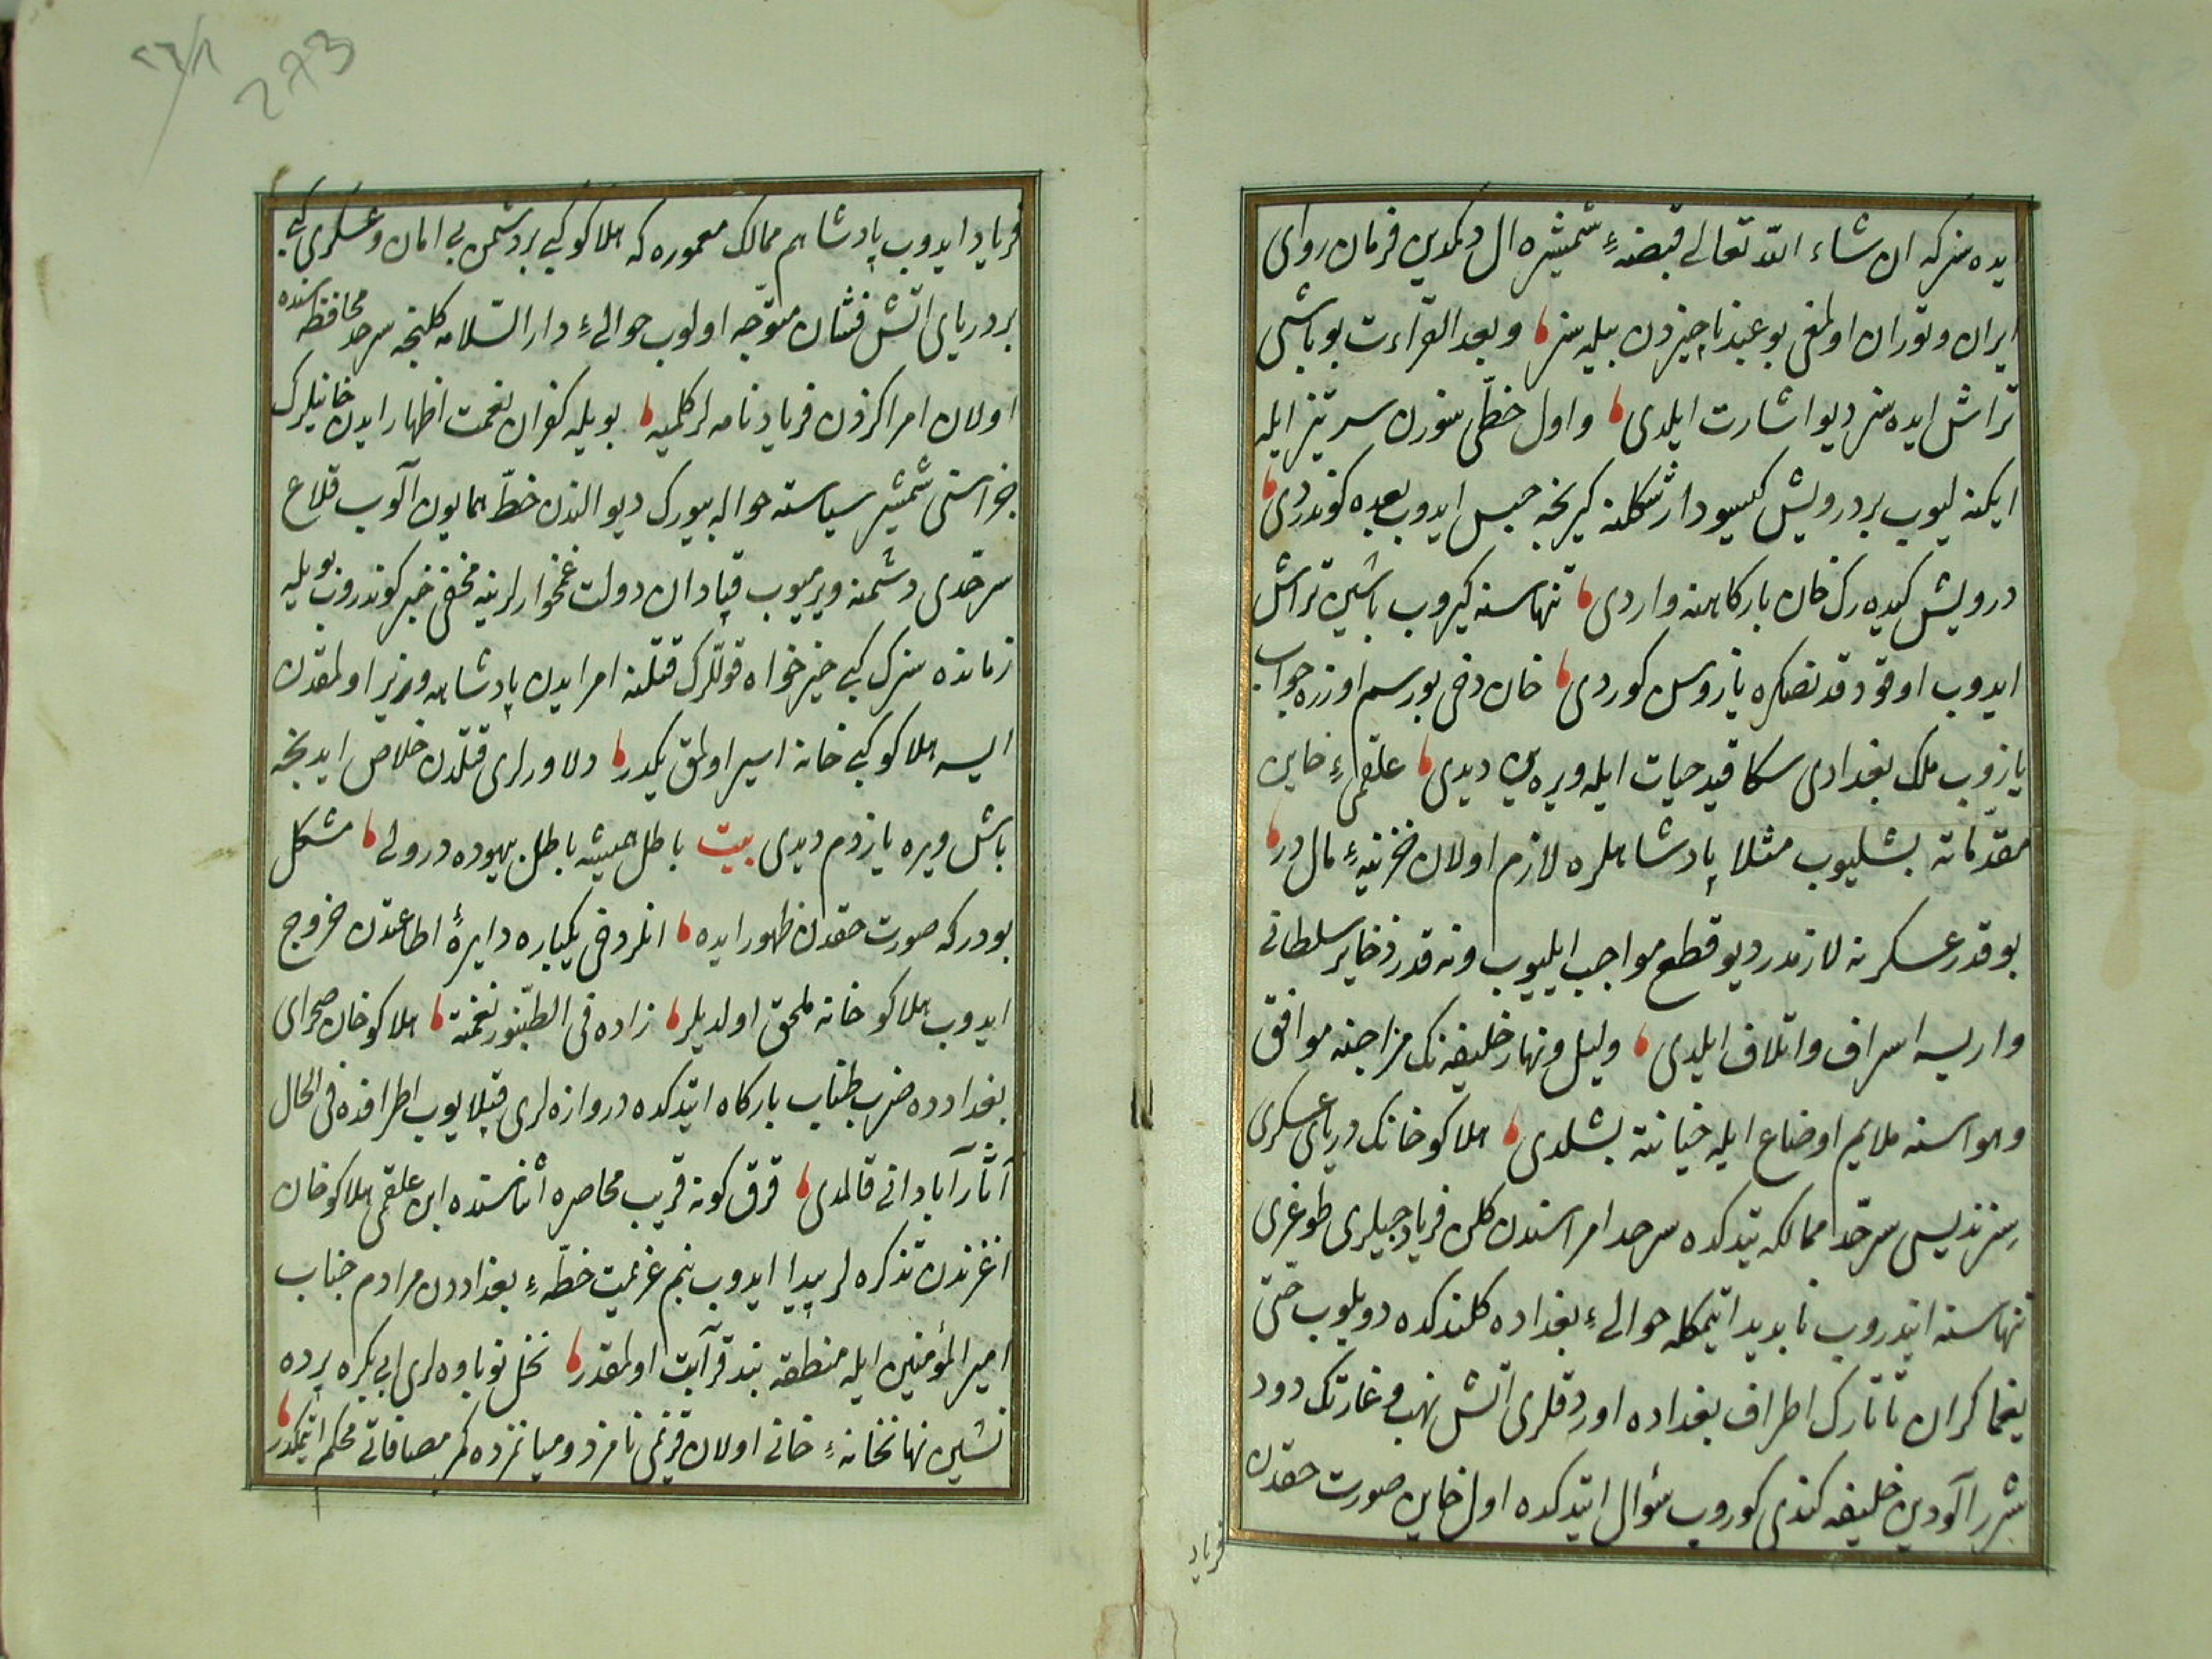 ایده سز که ان شاء الله تعالی قبضهٔ شمشیره ال دکمدین فرمان روای
ایران و توران اولمغی بو عبد ناچیزدن بیله سز و بعد القراءت بو باشی
تراش ایده سز دیو اشارت ایلدی و اول خطی سوزن سر تیز ایله
ایکنه لیوب بر درویش کیسودار شکلنه کیرنجه حبس ایدوب بعده کوندردی
درویش کیده رک خان بارکاهنه واردی تنهاسنه کیروب باشین تراش
ایدوب اوقودقدنصکره یازوسن کوردی خان دخی بو رسم اوزره جواب
یازوب ملک بغدادی سکا قید حیات ایله ویره ین دیدی علقمیٔ خاین
مقدماته بشلیوب مثلا پادشاهلره لازم اولان خزینهٔ مال در
بو قدر عسکر نه لازمدر دیو قطع مواجب ایلیوب و نه قدر ذخایر سلطانی
وار ایسه اسراف و اتلاف ایلدی و لیل و نهار خلیفه نک مزاجنه موافق
و هواسنه ملایم اوضاع ایله خیانته بشلدی هلاکو خانک دریای عسکری
سرحد ممالکه یتدکده سرحد امراسندن کلن فریادجیلری طوغری
تنهاسنه ایندروب نابدید ایتمکله حوالیٔ بغداده کلندکده دویلوب حتی
یغماکران تاتارک اطراف بغداده اوردقلری آتش نهب و غارتک دود
شرر آلودین خلیفه کندی کوروب سؤال ایتدکده اول خاین صورت حقدن
فریاد
فریاد ایدوب پادشاهم ممالک معموره که هلاکو کبی بر دشمن بی امان و عسکری کبی
بر دریای آتش فشان متوجه اولوب حوالیٔ دار السلامه کلنجه سرحد محافظه سنده
اولان امراکزدن فریادنامه لر کلمیه بویله کفران نعمت اظهار ایدن خاینلرک
جزاسنی شمشیر سیاسته حواله بیورک دیو الندن خط همایون آلوب قلاع
سرحدی دشمنه ویرمیوب قپادان دولت غمخوارلرینه مخفی خبر کوندروب بویله
زمانده سزک کبی خیرخواه قوللرک قتلنه امر ایدن پادشاهه وزیر اولمقدن
ایسه هلاکو کبی خانه اسیر اولمق یکدر دلاورلری قتلدن خلاص ایدنجه
باش ویره یازدم دیدی بیت باطل همیشه باطل بیهوده در ولی مشکل
بودر که صورت حقدن ظهور ایده انلر دخی یکباره دایرهٔ اطاعتدن خروج
ایدوب هلاکو خانه ملحق اولدیلر زاده فی الطنبور نغمة هلاکو خان صحرای
بغدادده ضرب طناب بارکاه ایتدکده دروازه لری قپلایوب اطرافنده فی الحال
آثار آبادانی قالمدی قرق کونه قریب محاصره اثناسنده ابن علقمی هلاکو خان
اغزندن تذکره لر پیدا ایدوب بنم عزیمت خطهٔ بغداددن مرادم جناب
امیر المؤمنین ایله منطقه بند قرآبت اولمقدر نخل نوباوه لری ابی بکره پرده
نشین نهانخانهٔ خانی اولان قزمی نامزد و میانمزده کمر مصافاتی محکم ایتمکدر